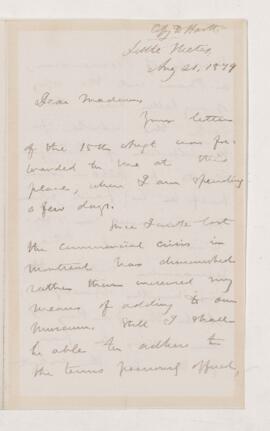 Little Metis
Aug 21, 1879
Dear Madam,
Your letter
of the 15th Augt was for-
warded to me at this
place, where I am spending
a few days.
Since I wrote last
the commercial crisis in
Montreal has diminished
rather than increased my
means of adding to our
Museum. Still I shall
be able to adhere to
the terms offered,